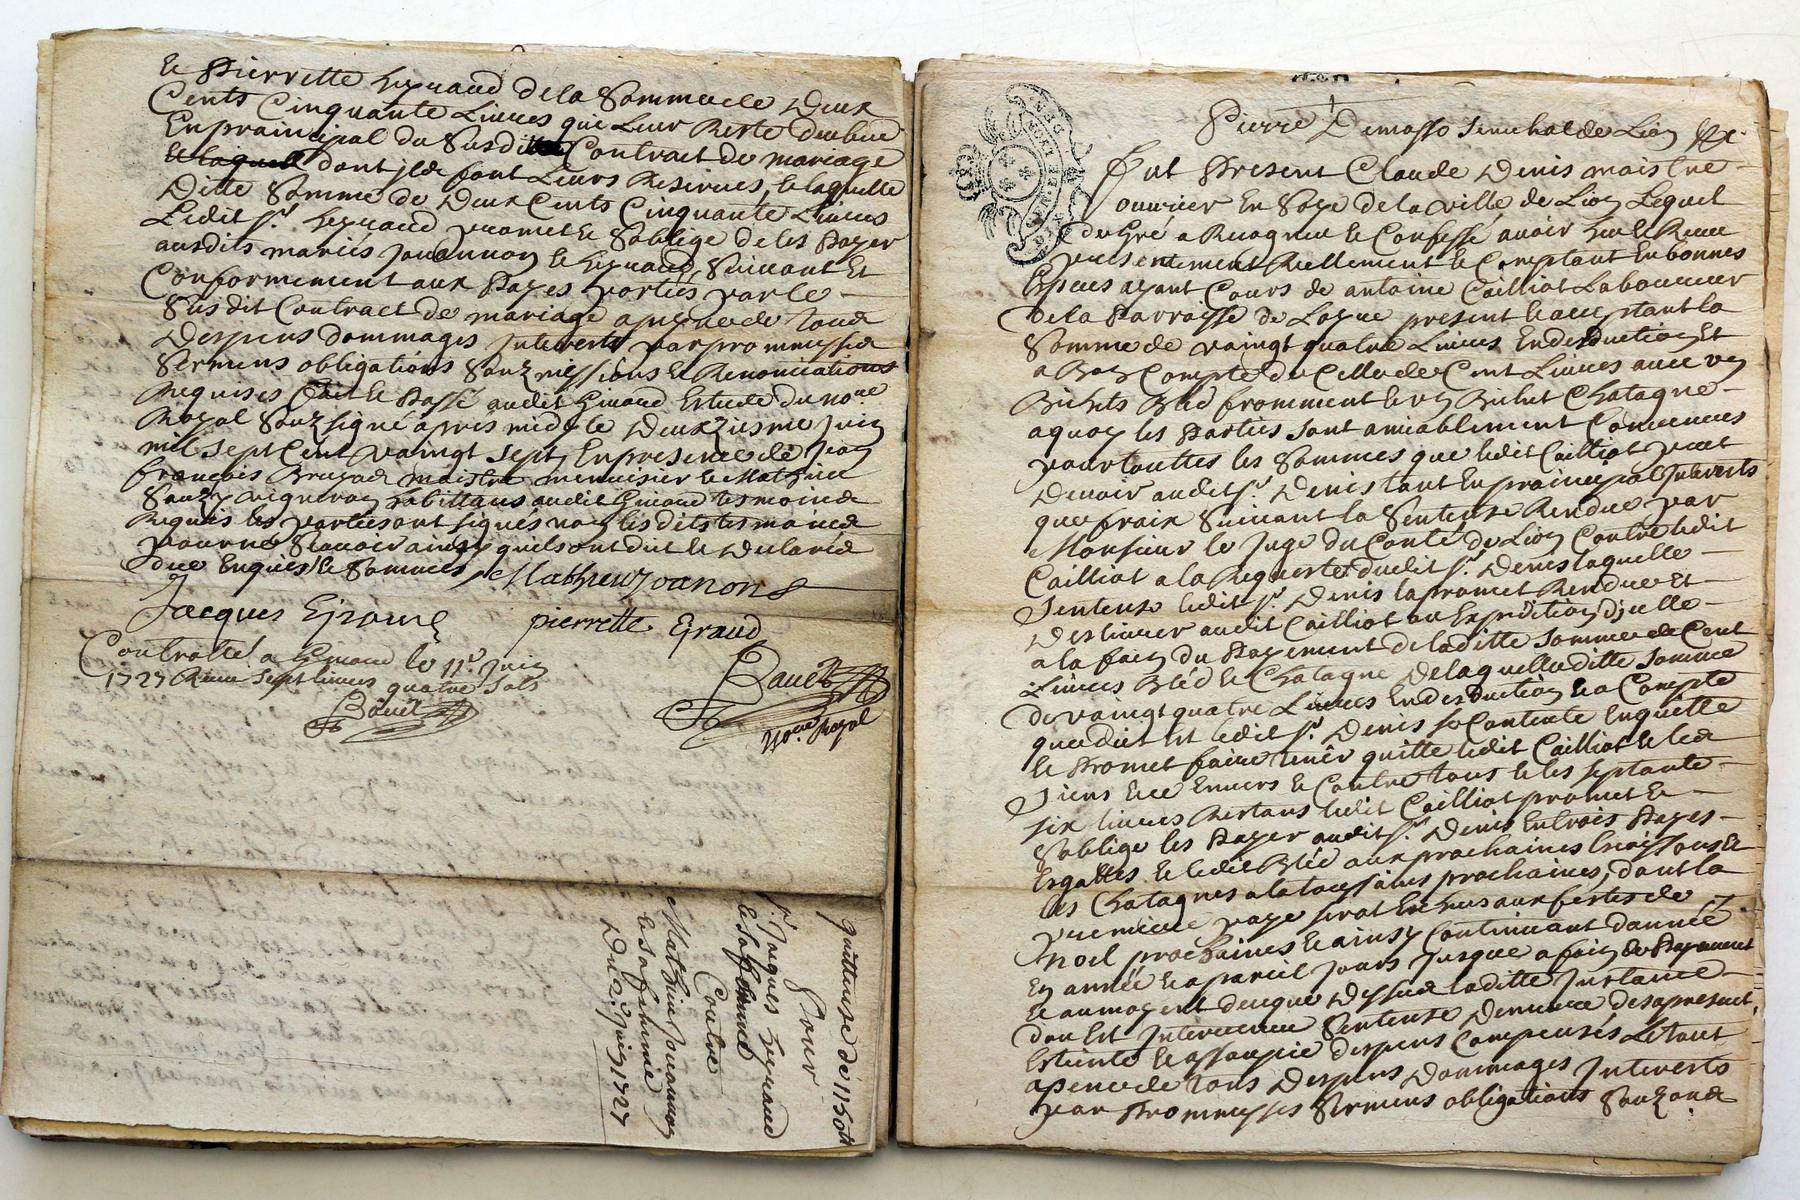 et Pierrette Eyraud de la Somme de Deux
Cents Cinquante Livres qui Leur Reste deubue
En principal du Susdit Contract de mariage
et laquelle dont jls font Leurs Reserves, et laquelle
Ditte Somme de Deux Cents Cinquante Livres
Ledit Sr. Eyraud promet et Soblige de les Payer
ausdits mariés Jouannon et Eyraud, Suivant Et
Conformement aux Payes portés par le
Sus dit Contract de mariage a peyne de tous
Despens dommages Interests par promesses
Sermens obligations Soubzmissions et Renonciations
Requises fait et Passé audit Giraud Estude du nore
Royal Soubzsigné apres midy le Deuxiesme Juin
mil Sept Cent vaingt Sept, En presence de Jean
francois maistre menuisier et Mathieu
vigneron habittans audit tesmoins
Requis les parties ont signes non lesdits tesmoins
pour ne Scavoir ainsy quils ont dit et Declaré
due Enquis et Sommés Mathieu Joanons
Jacques Eyraud pierrette Eyraud
Controllé a le 11e Juin
1727 Receu Sept livres quatre Sols
Bauet Bauet
nore Royal
quittense de 1150tt
Pour
Sr. Jacques Eyraud
Contre
Mathieu Jouannon
et sa femme
Du 2e Juin 1727
GEN. DE LION
Pierre Demasso Senechal de Lion &c.
fut Present Claude Denis maistre
ouvrier En Soye de la ville de Lion Lequel
de Gré a Recogneu et Confessé avoir heu et Receu
presentement Reellement et Comptant En bonnes
Especes ayant Cours de antoine Cailliot Laboureur
de la Parroisse de present et acceptant la
Somme de vaingt quatre Livres En desduction Et
a Bon Compte de Celle de Cent Livres avec un
Bichet Bled fromment et un Bichet Chatagne
a quoy les Parties sont amiablement Convenues
pour touttes les Sommes que ledit Cailliot peut
Devoir audit Sr. Denis tant En principal Interests
que fraix Suivant la Sentense Rendue par
Monsieur le Juge du Conté de Lion Contre ledit
Cailliot a la Requeste dudit Sr. Denis laquelle
Sentense ledit Sr. Denis la promet Rendre Et
Deslivrer audit Cailliot ou Expedition d'jcelle
a la fain du Payement de laditte Somme de Cent
Livres Bled et Chatagne De laquelle ditte Somme
de vaingt quatre Livres En desduction et a Compte
que dit est ledit Sr. Denis se Contente En quitte
et Promet faire tenir quitte ledit Cailliot et les
Siens Envers et Contre tous et les septante
six livres Restans ledit Cailliot promet Et
Soblige les Payer audit Sr. Denis En trois Payes
Esgalles et ledit Bled aux prochaines Et
les Chatagnes a la toussaints prochaines, dont la
premiere paye aux festes de
noel prochaines et ainsy Continuant dannée
En année et a pareil Jours Jusque a fain de Payement
et au moyent de que Dessus laditte Instance
don Est Intervenue Sentense Demeure des a present
Esteinte et assoupie despens Compensés Le tout
a pene de tous Despens Dommages Interests
par Prommesses Sermens obligations